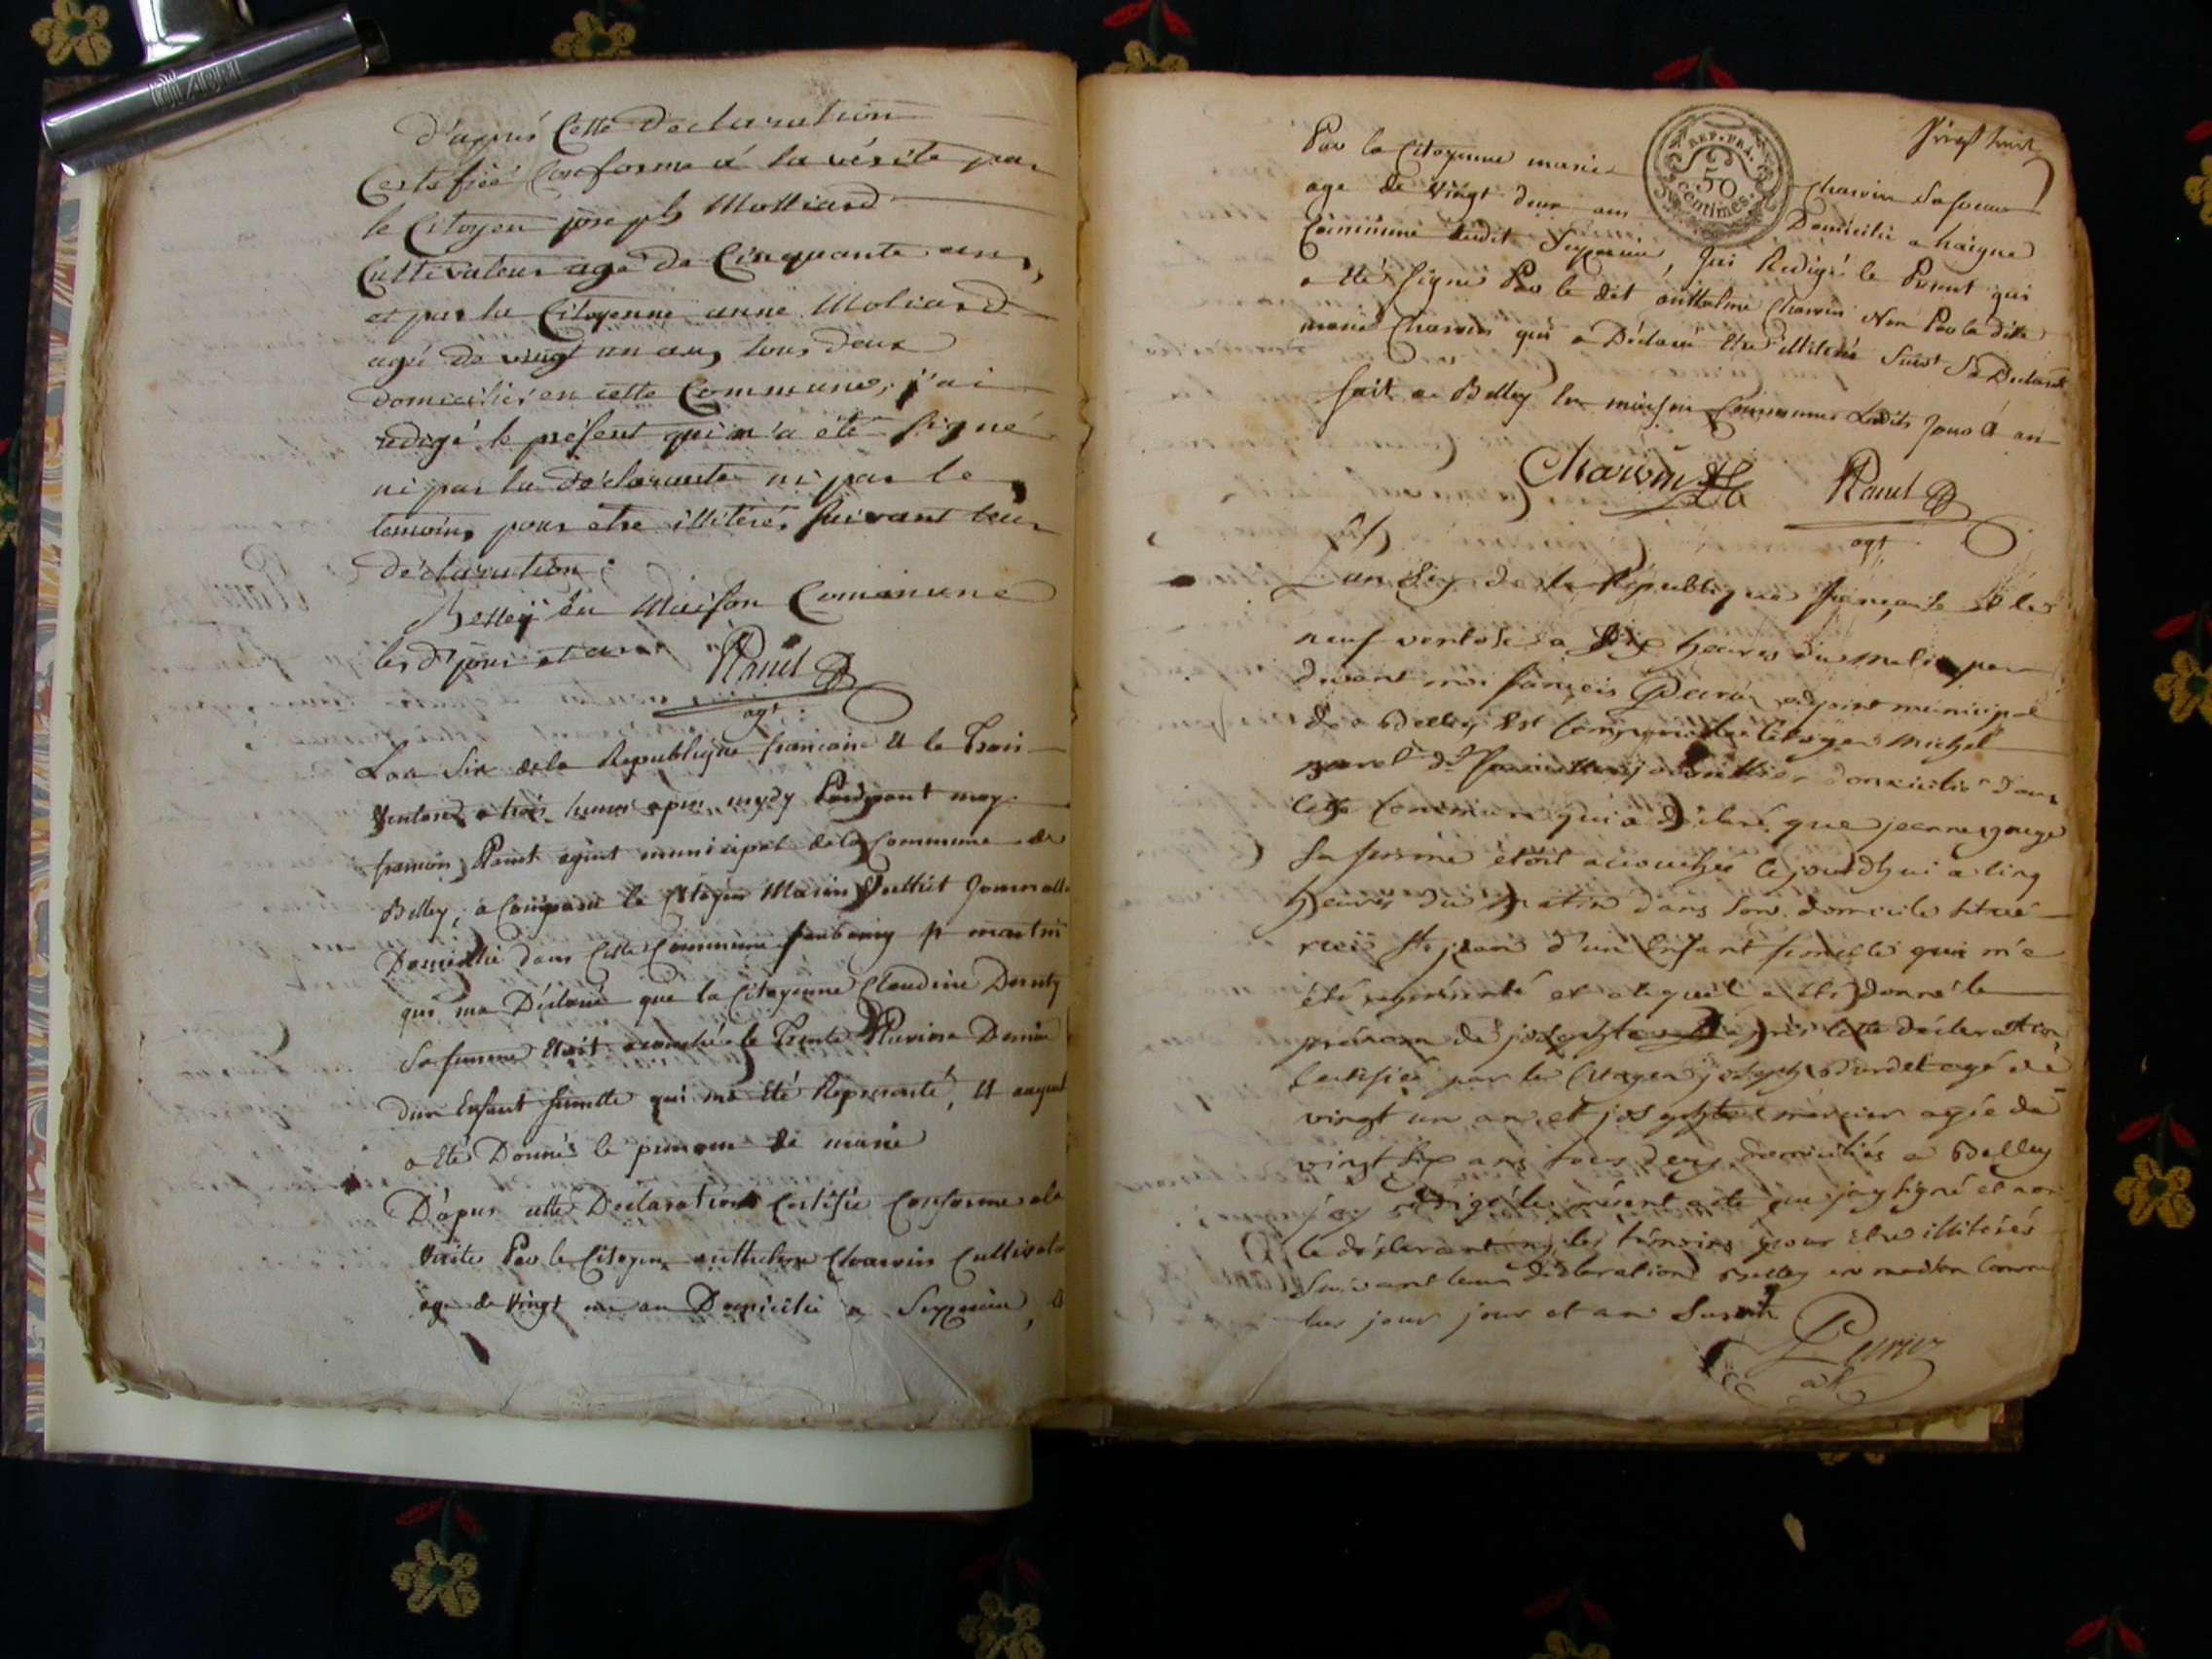 d'après Cette Declaration
Certifiée Conforme à la vérité par
le Citoyen joseph Molliard
Cultivateur agé de Cinquante ans,
et par la Citoyenne anne Moliard
agé de vingt un ans, tous deux
domiciliés en cette Commune, j'ai
redigé le présent qui n'a été signé
ni par la déclarante ni par le,
temoins pour etre illitérés suivant leur
déclaration.
Belley en Maison Commune
les d. jour et an.
agt
Lan Six de la Republique francaise Et le Trois
Ventose a trois heures apres mydy Pardevant moy
francois agent municipal de la Commune de
Belley, a Comparu le Citoyen Marin
Domicilié dans Cette Commune faubourg st martin
qui ma Déclaré que la Citoyenne Claudine
Sa femme Etoit acouchée le Trente Pluviose Dernier
dun Enfant femelle qui ma Eté Representé, Et auquel
a Eté Donné le prenom de marie
D'apres cette Declaration Certifié Conforme a la
Verité Par le Citoyen anthelme Charvin Cultivate
age de Vingt un an Domicilié a
vingt huit
REP. FRA.
50
centimes.
Par la Citoyenne marie Charvin Sa soeur
age de Vingt deux ans Domicilié a
Commune dudit , Jai Redigé le Present qui
a été signé Par le dit anthelme Charvin Non Par la dite
marie Charvin qui a Déclaré Etre illiterée Suivt Sa Declarat
fait a Belley En maison Commune Lesdits Jour & an
Charvin
agt
L'an Six de la République française Et le
neuf ventose a dix heures du matin par
devant moi françois adjoint municipal
de Belley Est Comparu le Citoyen Michel
domicilié dans
Cette Commune qui a déclaré que jeanne
sa femme étoit acouchée cejourd'hui a Cinq
heures du matin dans son domicile situé
rue St jean d'un Enfant femelle qui m'a
été représenté et auquel a été donné le
prénom de josephte D'après Cette déclaration
Certifiée par le Citoyen joseph agé de
vingt un an, et josephte mercier agée de
vingt six ans tous deux domiciliés a Belley
j'ay redigé le présent acte que j'ay signé et non
le déclarant ny les témoins pour etre illiterés
suivant leur déclaration Belley en maison Commu
les jour jour et an susdit
adt